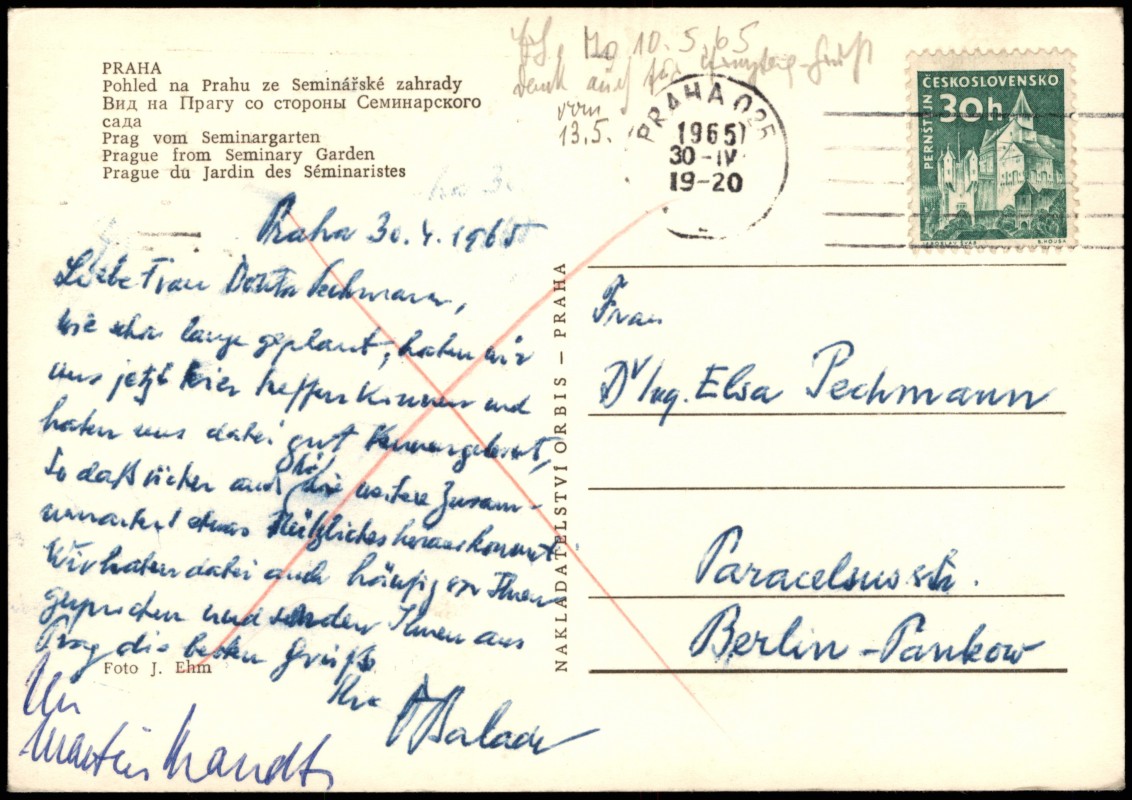 PRAHA
Pohled na Prahu ze Seminářské zahrady
Вид на Прагу со стороны Семинарского
сада
Prag vom Seminargarten
Prague from Seminary Garden
Prague du Jardin des Séminaristes
10.5.65
Dank auch für
vom
13.5.
PRAHA 025
1965
30-IV
19-20
ČESKOSLOVENSKO
30h
PERNŠTEJN
JAROSLAV ŠVÁB
Praha 30.4.1965
Liebe Frau Pechmann,
wie schon lange geplant, haben wir
uns jetzt hier treffen können und
haben uns dabei gut kennengelernt,
so daß sicher auch für die weitere Zusam-
menarbeit etwas Nützliches herauskommt.
Wir haben dabei auch häufig von Ihnen
gesprochen und senden Ihnen aus
Prag die besten Grüße
Foto J. Ehm
Ihr
Ihr
Martin
NAKLADATELSTVÍ ORBIS – PRAHA
Frau
Dr Ing. Elsa Pechmann
Paracelsusstr.
Berlin-Pankow